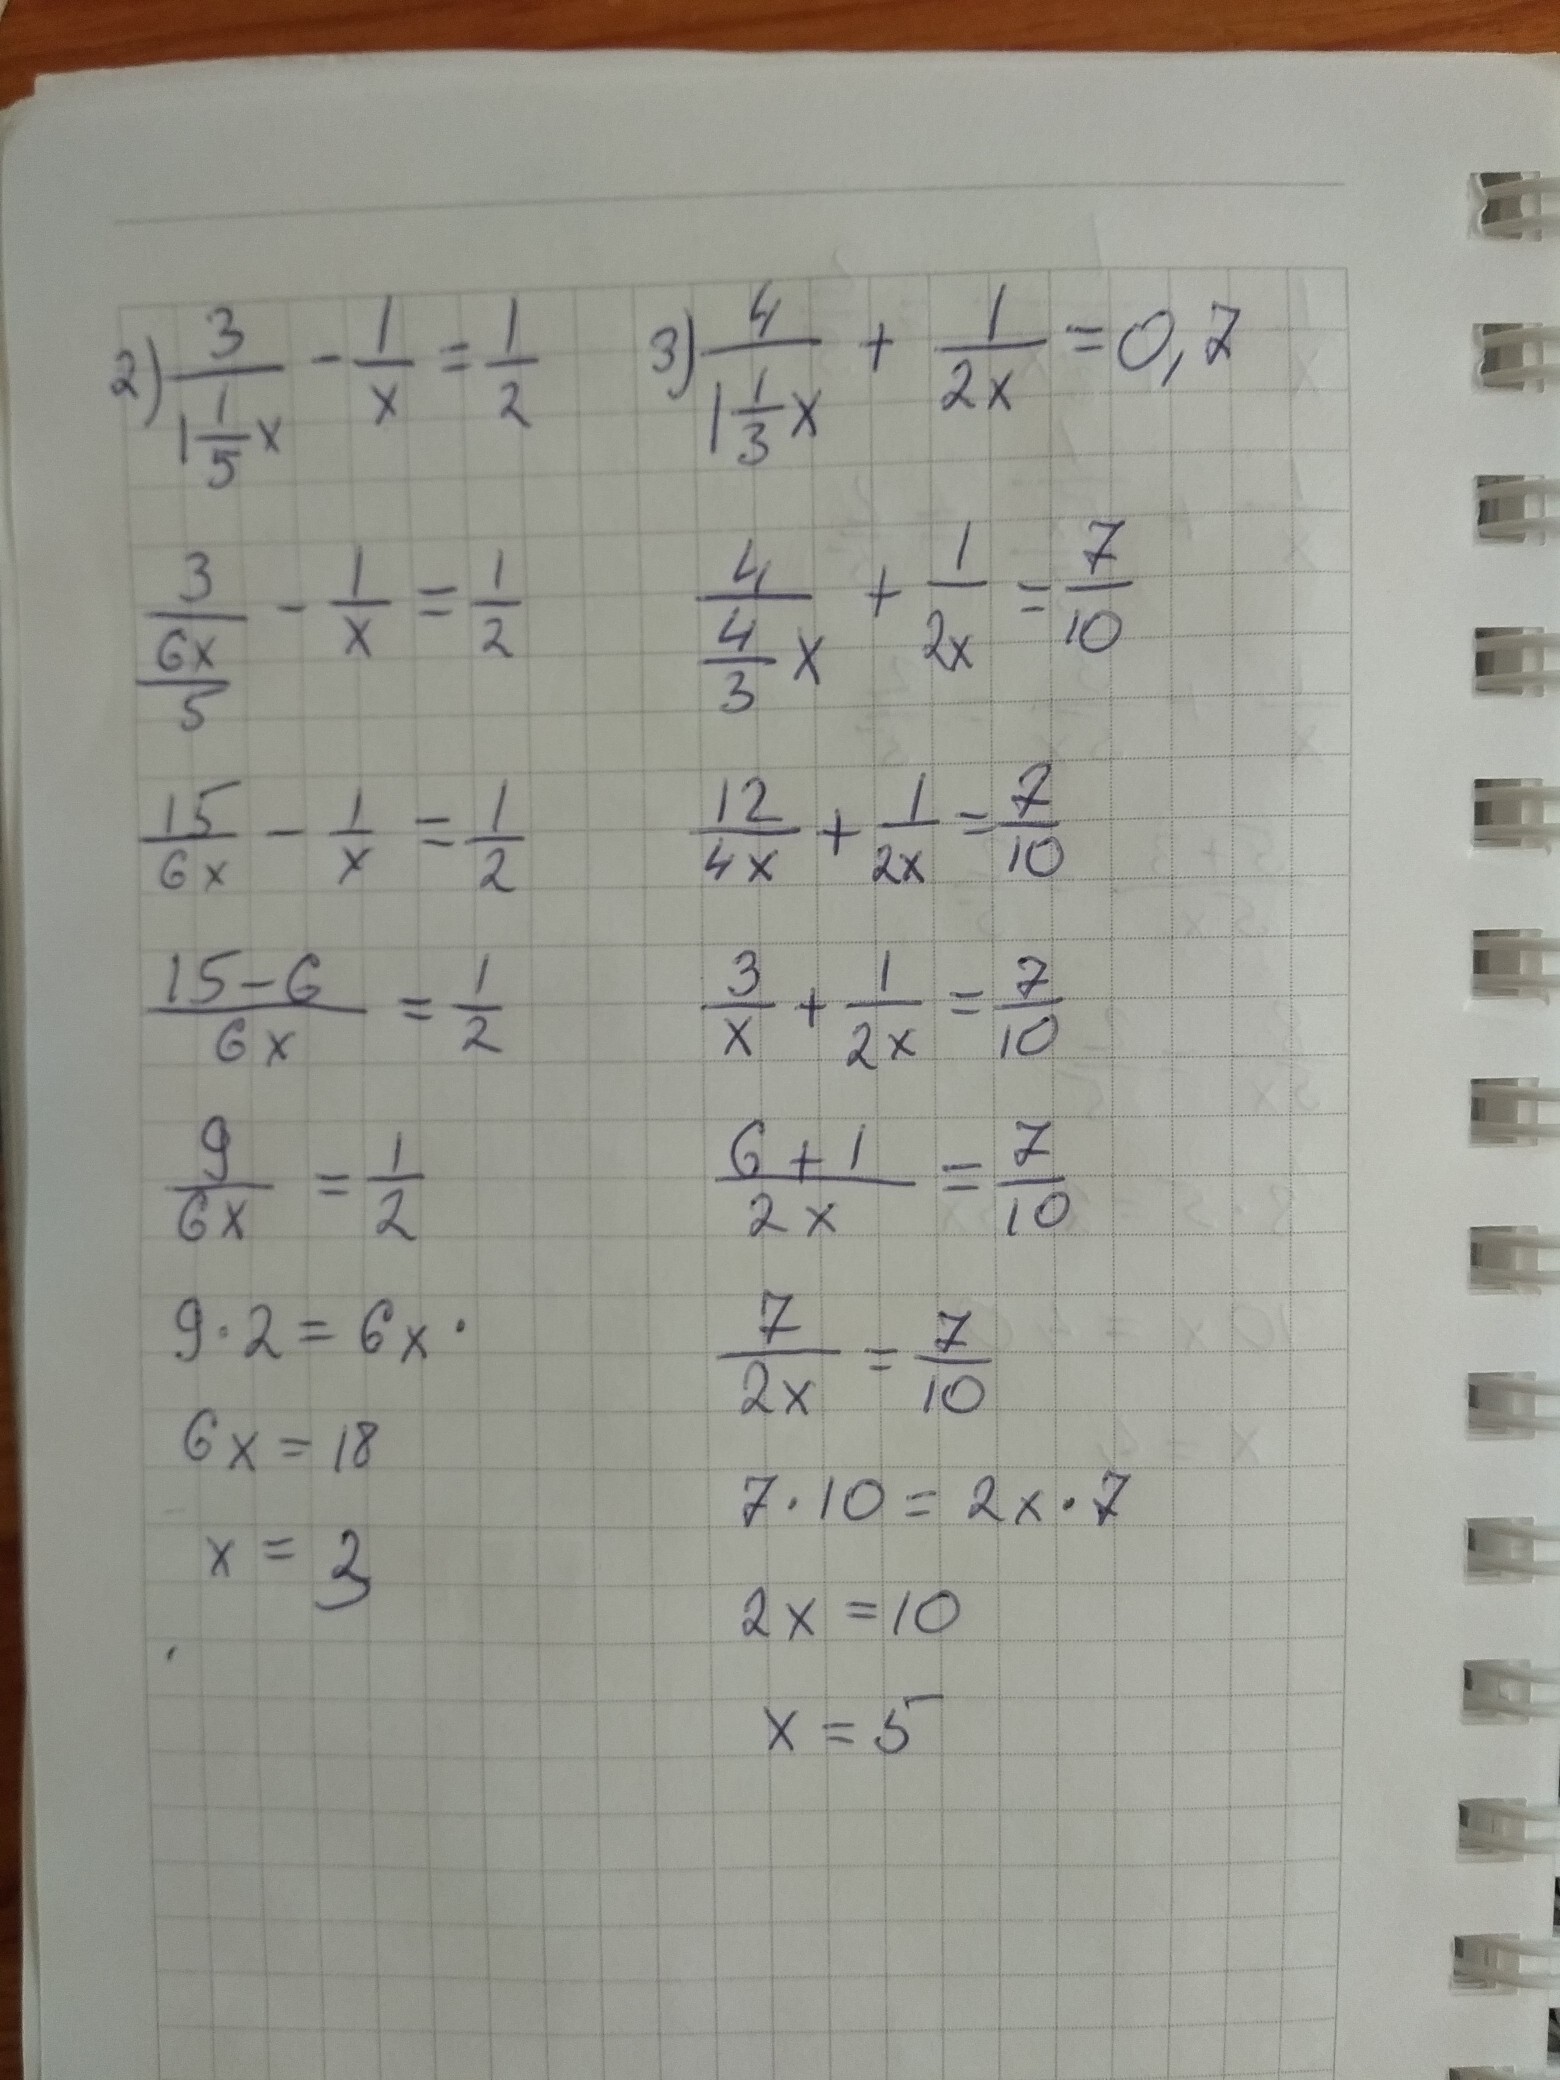 2) 3/(1 1/5 x) - 1/x = 1/2
3/(6x/5) - 1/x = 1/2
15/6x - 1/x = 1/2
(15-6)/6x = 1/2
9/6x = 1/2
9·2 = 6x·
6x = 18
x = 3
3) 4/(1 1/3 x) + 1/2x = 0,7
4/(4/3 x) + 1/2x = 7/10
12/4x + 1/2x = 7/10
3/x + 1/2x = 7/10
(6+1)/2x = 7/10
7/2x = 7/10
7·10 = 2x·7
2x = 10
x = 5